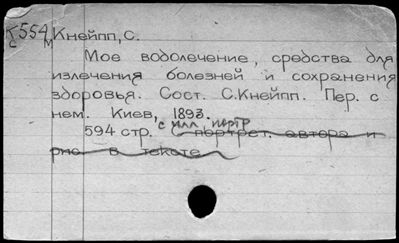 К 554 Кнейпп, С.
С м
Мое водолечение, средства для
излечения болезней и сохранения
здоровья. Сост. С.Кнейпп. Пер. с
нем. Киев, 1893.
с илл, портр
594 стр. с портрет. автора и
рис в тексте